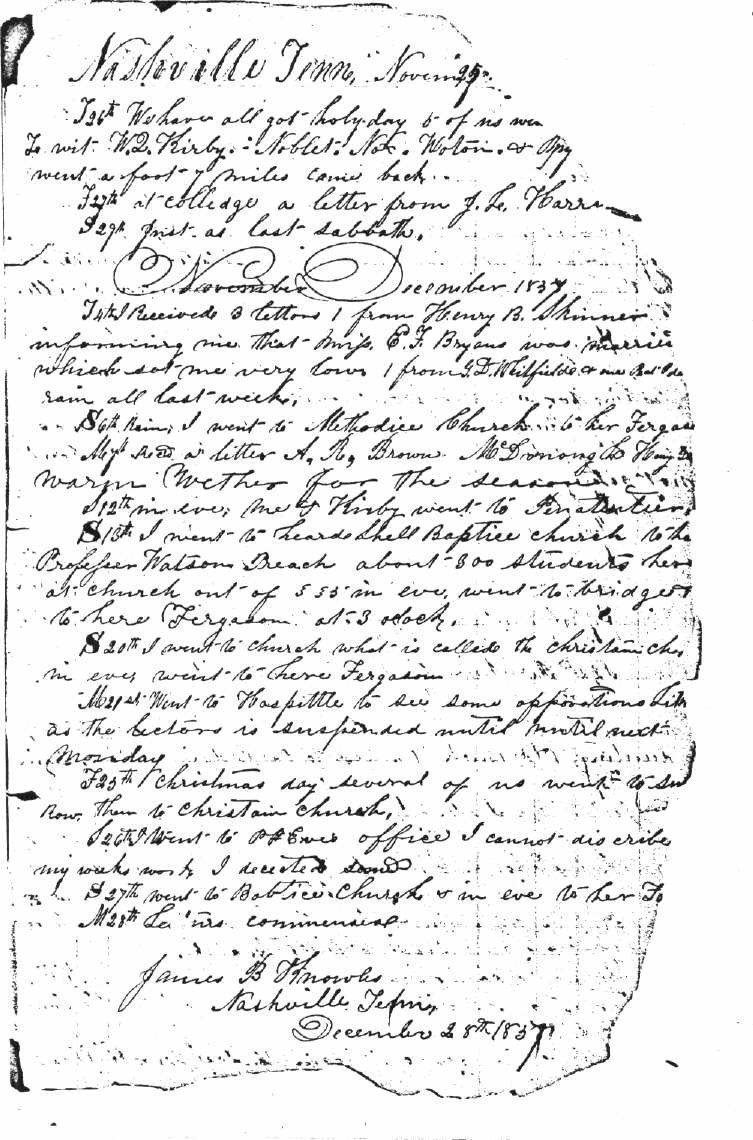 Nashville Tenn, Novem 25
T 26th We have all got holyday 5 of us we
To wit W. D. Kirby. Noblet. Woton. &
went a foot 7 miles came back.
F 27th at colledge a letter from J. L. Harri
S 29th just as last sabbath.
November December 1857
F 4th I Received 3 letters 1 from Henry B. Skinner
informing me that miss. E. F. Bryans was married
which set me very low 1 from G. D. Whitfield & one
rain all last week,
S 6th Rain, I went to Methodice Church to her Fergas
M 7th Recd a letter A. R. Brown McDonough
warm Wether for the season
S 12th in eve, me & Kirby went to
S 13th I went to heardshell Baptice church to he
Professer Watson Preach about 300 students her
at church out of 555 in eve, went to bridge
to here Fergason at 3 oclock,
S 20th I went to church what is called the christain ch
in eve, went to here Fergason
M 21st Went to Haspittle to see some opporations
as the lectors is suspended until until next
Monday
F 25th christmas day several of us went to
Row, them to christain church,
S 26th I Went to office I cannot discribe
my weeks work, I decected some
S 27th went to Babtice Church & in eve to her Fe
M 28th commensed
James B Knowles
Nashville Tenn,
December 28th 1857